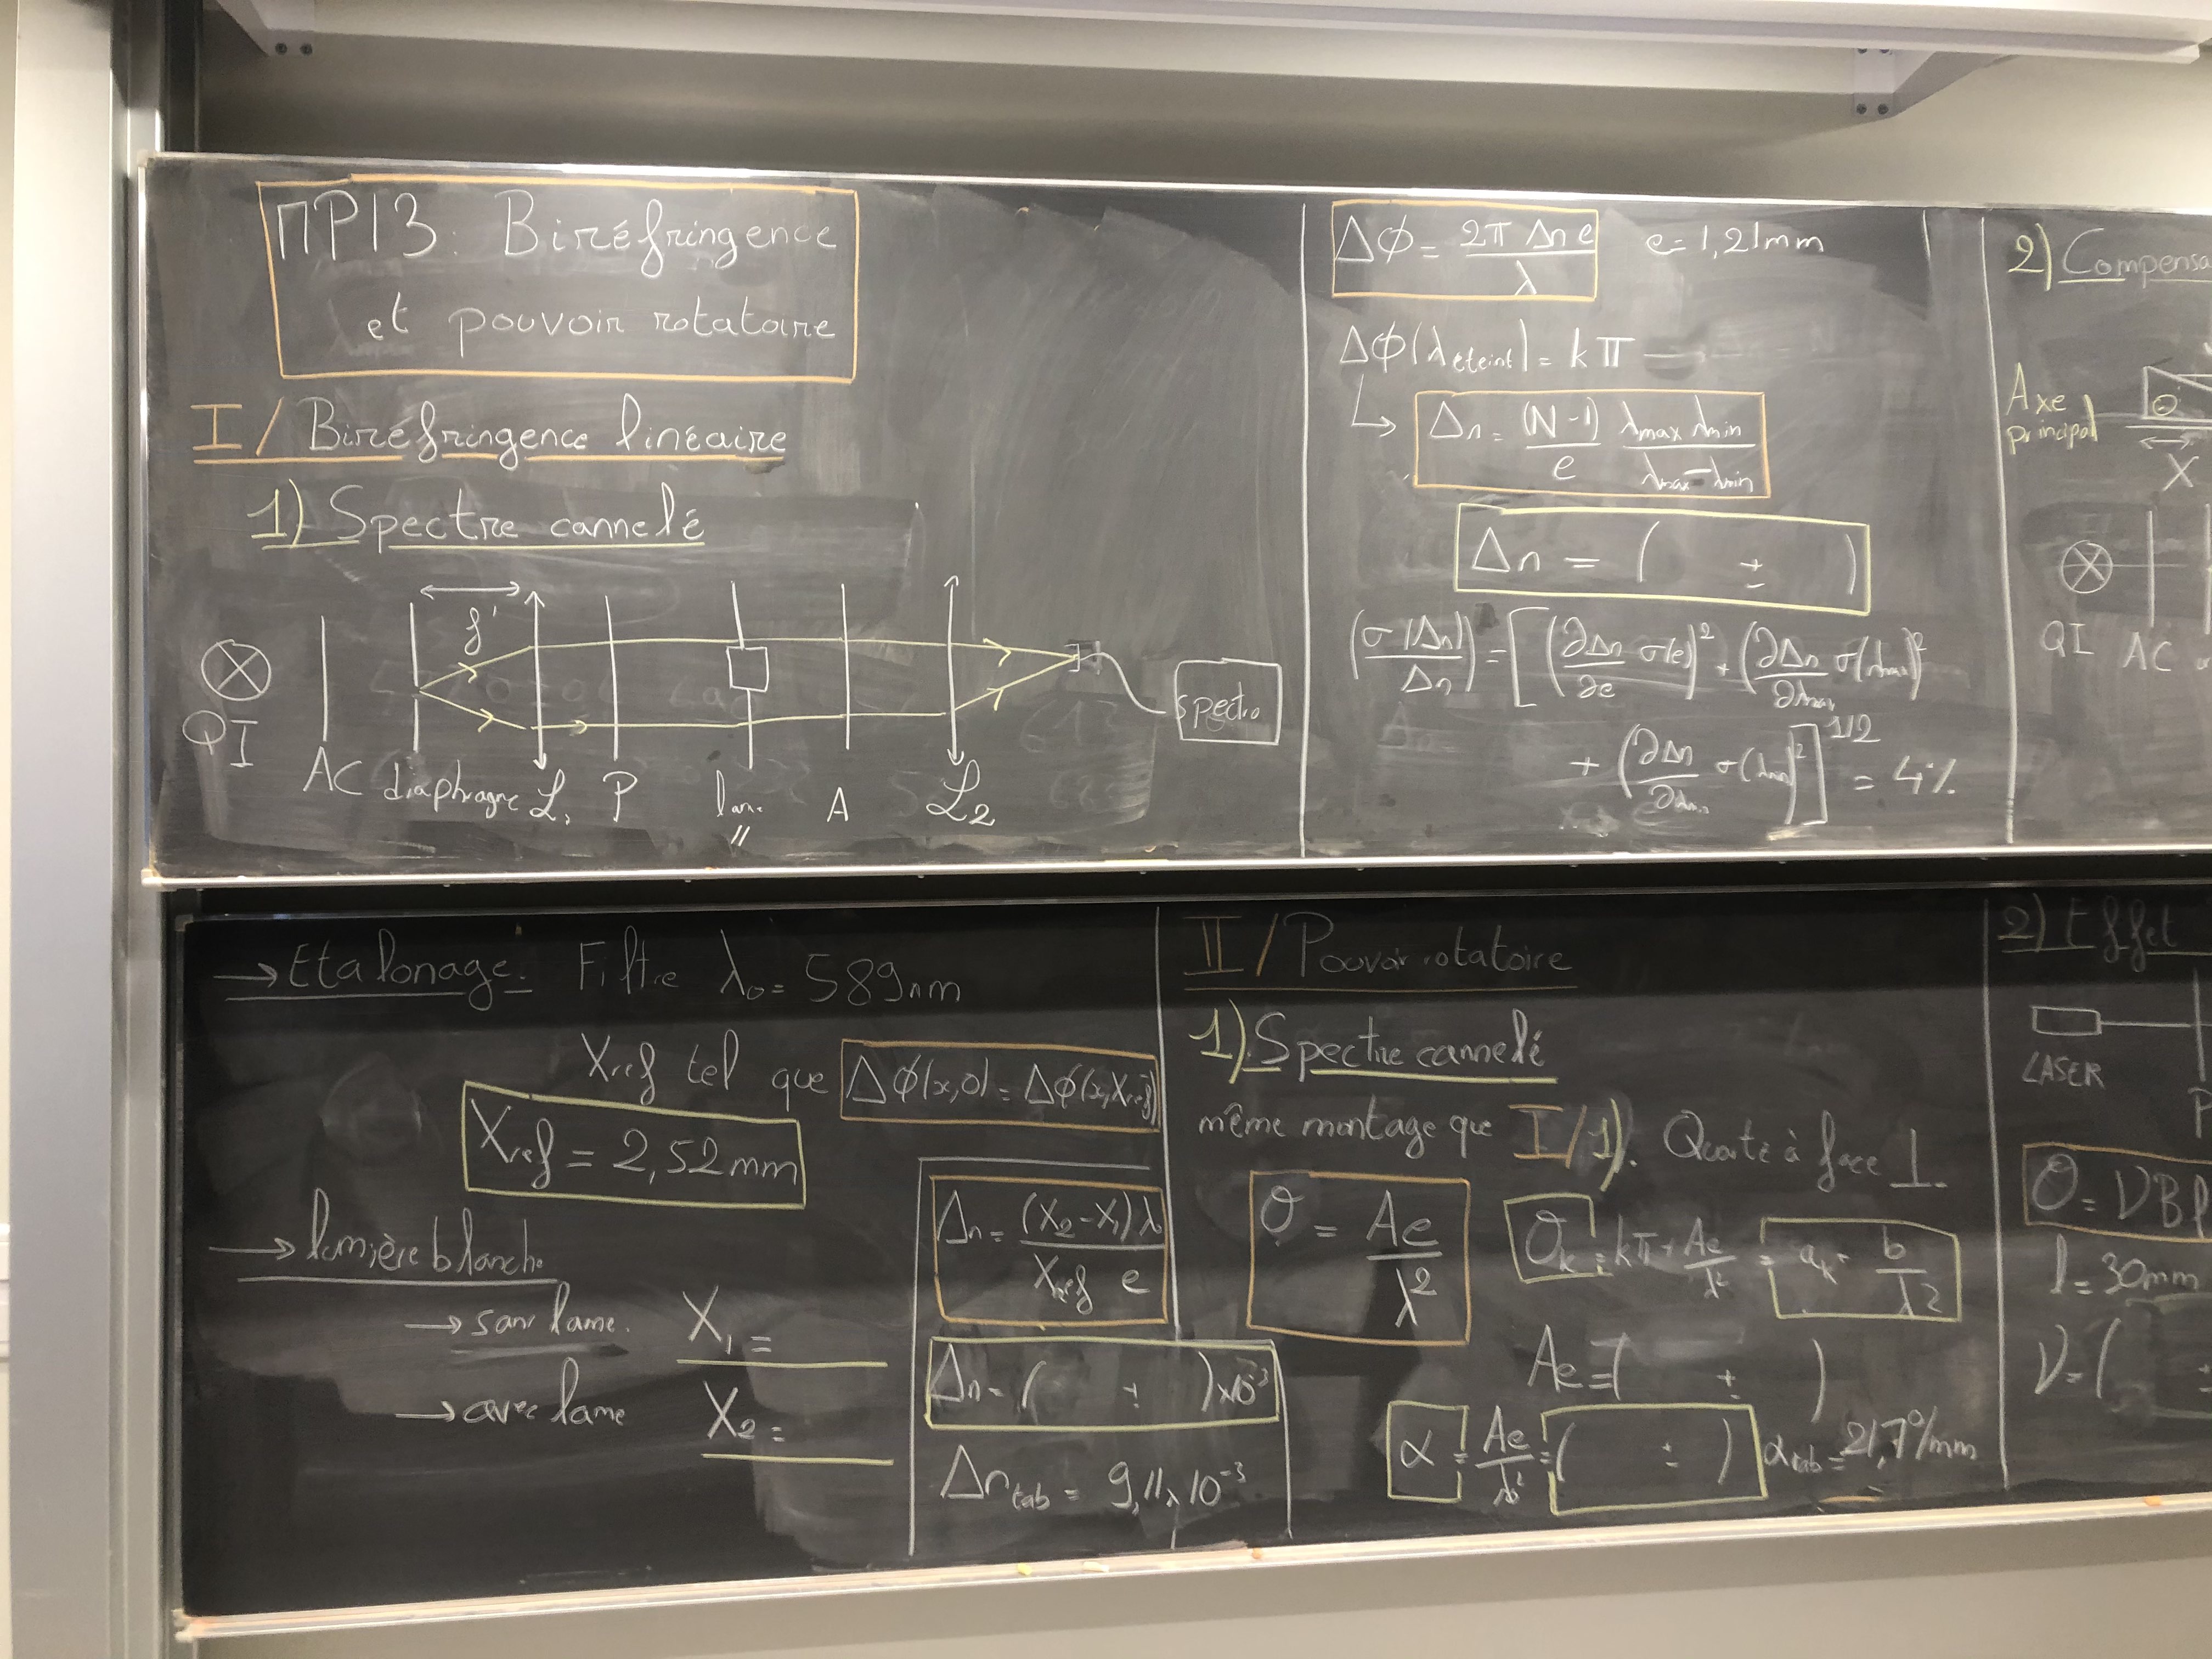 MP13: Biréfringence
et pouvoir rotatoire
I/ Biréfringence linéaire
1) Spectre cannelé
f'
QI
AC diaphragme L1 P lame A L2
//
spectro
Δϕ = 2π Δn e / λ e = 1,21mm
Δϕ(λeteint) = kπ
↳ Δn = (N-1)/e λmax λmin / λmax-λmin
Δn = ( ± )
(σ(Δn)/Δn) = [(∂Δn/∂e σ(e))² + (∂Δn/∂λmax σ(λmax))²
+ (∂Δn/∂λmin σ(λmin))²]^1/2 = 4%
2) Compensa
Axe
principal
X
QI AC
→ Etalonage. Filtre λ0 = 589nm
Xref tel que Δϕ(x,0) = Δϕ(x,Xref)
Xref = 2,52mm
→ lumière blanche
→ sans lame. X1 =
→ avec lame X2 =
Δn = (X2-X1)λ / Xref e
Δn = ( ± )×10⁻³
Δntab = 9,11×10⁻³
II/ Pouvoir rotatoire
1) Spectre cannelé
même montage que I/1). Quartz à face ⊥.
θ = Ae/λ²
θk = kπ + Ae/λ² = ak + b/λ²
Ae = ( ± )
α = Ae/λ0² = ( ± ) αtab = 21,7°/mm
2) Effet
LASER
P
θ = VBl
l = 30mm
V = ( ±